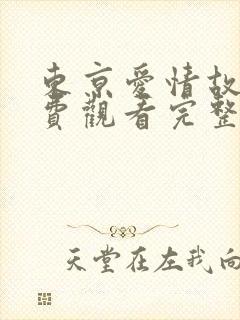 東京愛情故
費觀看完整
天堂在左我向